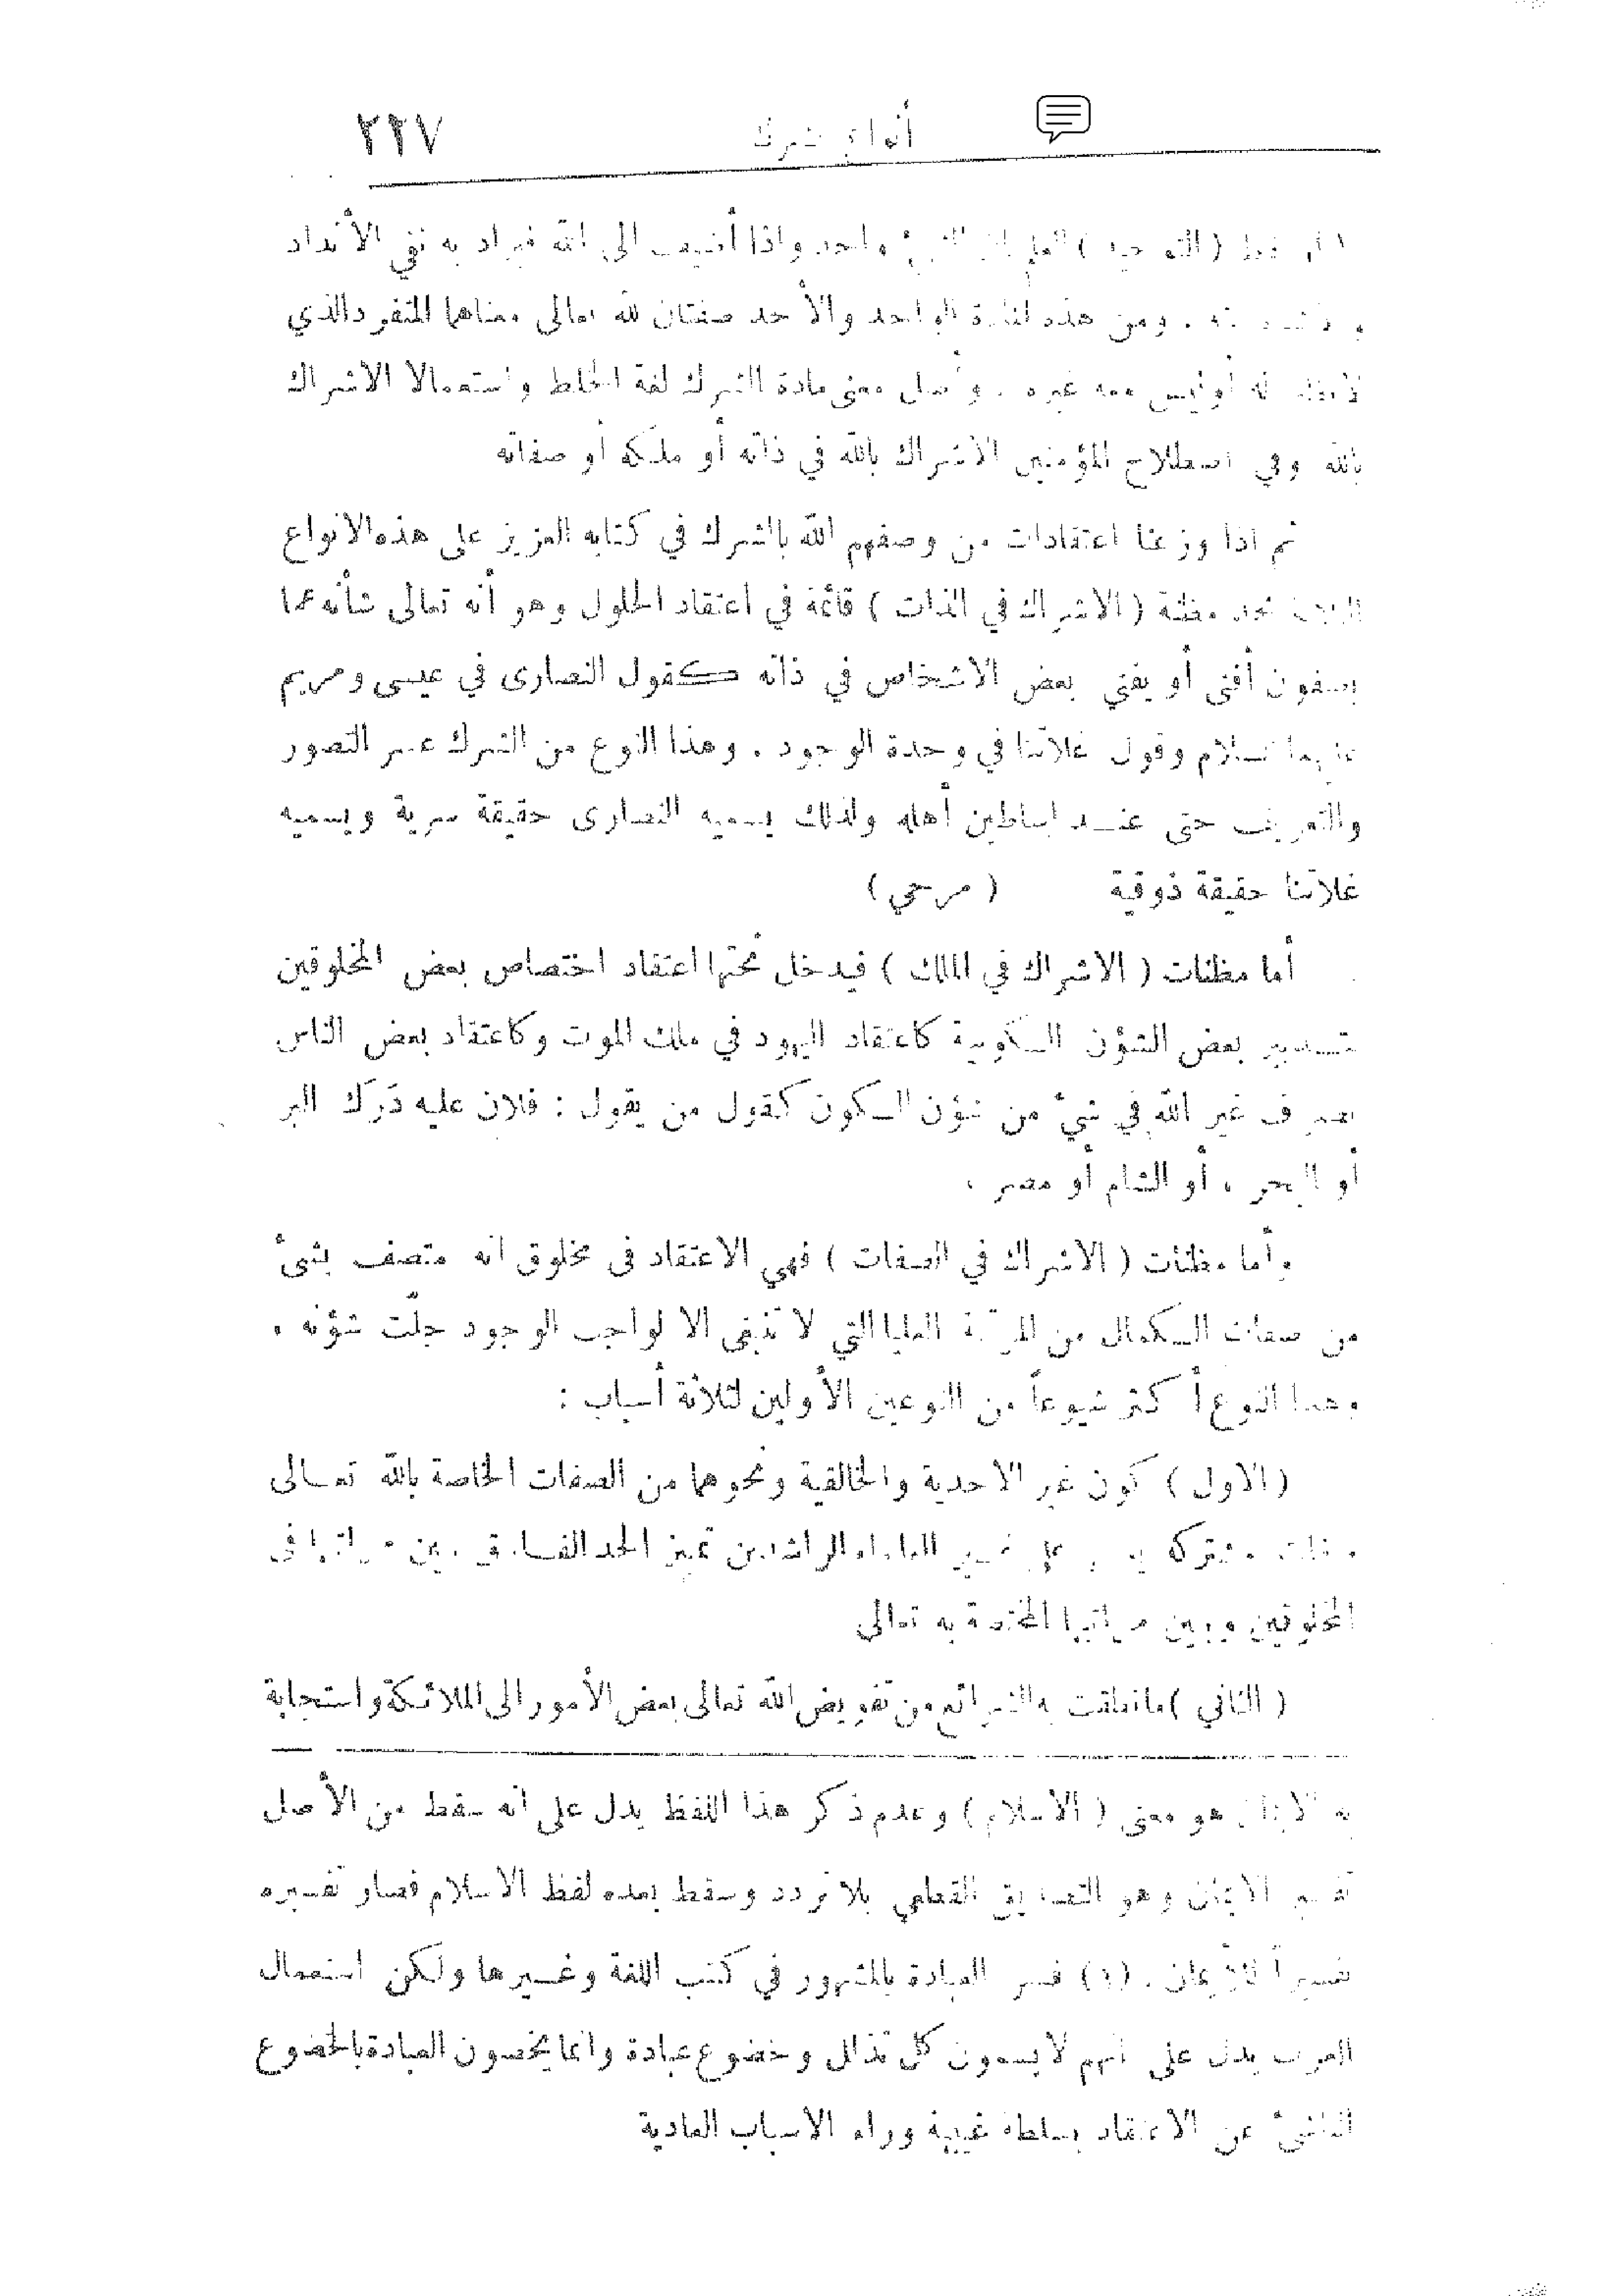 أنواع الشرك ٢٢٧
لفظ (التوحيد) العلم بأن الشيء واحد واذا أضيف الى الله فيراد به نفي الأنداد
ومن هذه المادة الواحد والأحد صفتان لله تعالى معناهما المتفرد الذي
لا نظير له أو ليس معه غيره . وأصل معنى مادة الشرك لغة الخلط واستعمالا الاشراك
بالله وفي اصطلاح المؤمنين الاشراك بالله في ذاته أو ملكه أو صفاته
ثم اذا وزعنا اعتقادات من وصفهم الله بالشرك في كتابه العزيز على هذه الانواع
نجد مظنة (الاشراك في الذات) قائمة في اعتقاد الحلول وهو أنه تعالى شأنه عما
يصفون أفنى أو يفني بعض الاشخاص في ذاته كقول النصارى في عيسى ومريم
عليهما السلام وقول غلاتنا في وحدة الوجود . وهذا النوع من الشرك عسر التصور
والتعريف حتى عند اساطين أهله ولذلك يسميه النصارى حقيقة سرية ويسميه
غلاتنا حقيقة ذوقية (مرحي)
أما مظنات (الاشراك في الملك) فيدخل تحتها اعتقاد اختصاص بعض المخلوقين
بتدبير بعض الشؤن الكونية كاعتقاد اليهود في ملك الموت وكاعتقاد بعض الناس
تصرف غير الله في شيء من شؤن الكون كقول من يقول : فلان عليه دَرَك البر
أو البحر ، أو الشام أو مصر ،
وأما مظنات (الاشراك في الصفات) فهي الاعتقاد في مخلوق انه متصف بشيء
من صفات الكمال من المرتبة العليا التي لا تنبغي الا لواجب الوجود جلّت شؤنه ،
وهذا النوع أكثر شيوعاً من النوعين الأولين لثلاثة أسباب :
(الاول) كون غير الاحدية والخالقية ونحوهما من الصفات الخاصة بالله تعالى
صفات مشتركة غير العلماء الراشدين تمييز الحد الفارق بين مراتبها في
المخلوقين وبين مراتبها المختصة به تعالى
(الثاني) ما نطقت به الشرائع من تفويض الله تعالى بعض الأمور الى الملائكة واستجابة
هو معنى (الاسلام) وعدم ذكر هذا اللفظ يدل على انه سقط من الأصل
تفسير الايمان وهو التصديق القطعي بلا تردد وسقط بعده لفظ الاسلام فصار تفسيره
تفسيراً للايمان . (١) فسر العبادة بالمشهور في كتب اللغة وغيرها ولكن استعمال
العرب يدل على انهم لا يسمون كل تذلل وخضوع عبادة وانما يخصون العبادة بالخضوع
الناشئ عن الاعتقاد بسلطة غيبية وراء الاسباب العادية